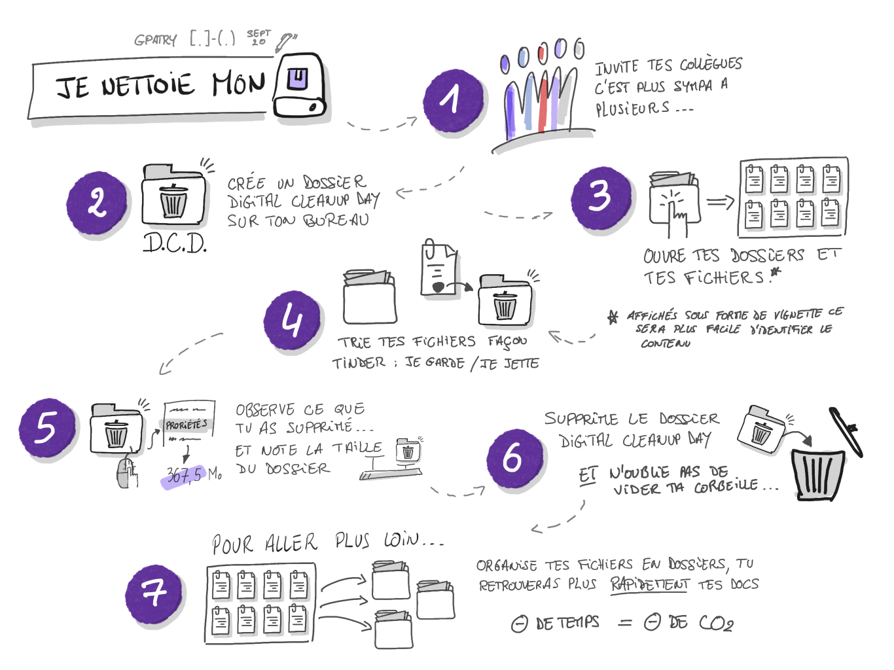 GPATRY [.]-(.) SEPT 20
JE NETTOIE MON
1
INVITE TES COLLÈGUES
C'EST PLUS SYMPA A
PLUSIEURS...
2
D.C.D.
CRÉE UN DOSSIER
DIGITAL CLEANUP DAY
SUR TON BUREAU
3
OUVRE TES DOSSIERS ET
TES FICHIERS.*
* AFFICHÉS SOUS FORME DE VIGNETTE CE
SERA PLUS FACILE D'IDENTIFIER LE
CONTENU
4
TRIE TES FICHIERS FAÇON
TINDER : JE GARDE / JE JETTE
5
PROPRIÉTÉS
367,5 Mo
OBSERVE CE QUE
TU AS SUPPRIMÉ...
ET NOTE LA TAILLE
DU DOSSIER
6
SUPPRIME LE DOSSIER
DIGITAL CLEANUP DAY
ET N'OUBLIE PAS DE
VIDER TA CORBEILLE...
7
POUR ALLER PLUS LOIN...
ORGANISE TES FICHIERS EN DOSSIERS, TU
RETROUVERAS PLUS RAPIDEMENT TES DOCS
⊖ DE TEMPS = ⊖ DE CO2